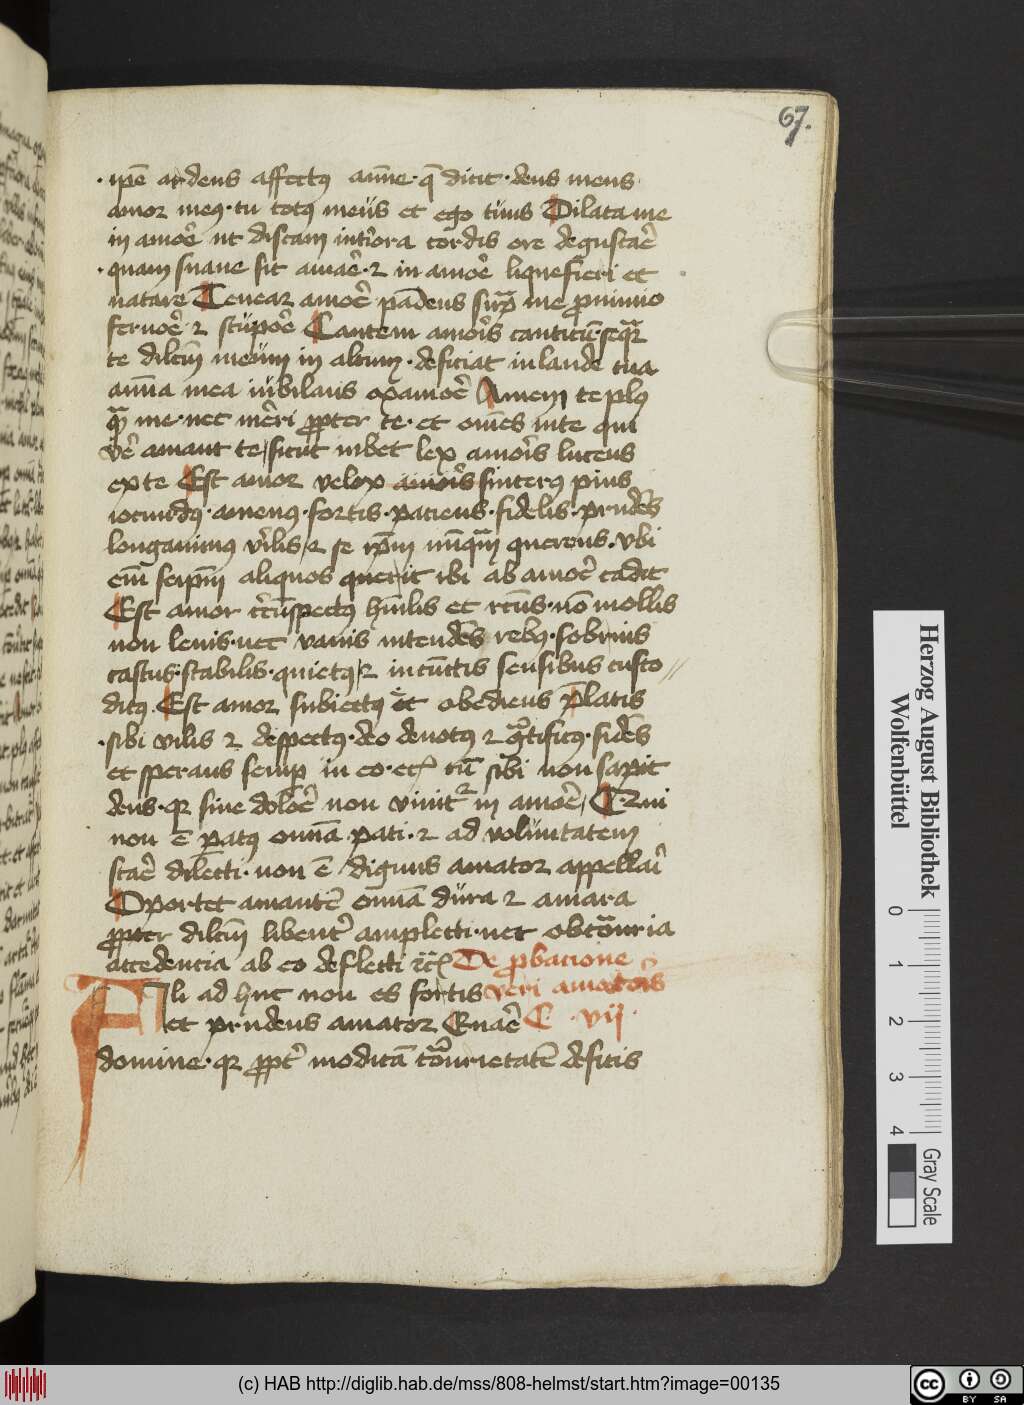 67.
ip̄e ardens affectꝰ aīe q̄ dicit deus meus
amor meꝰ tu totꝰ meus et ego tuus Dilata me
in amoē ut discam int̓iora cordis ore degustaē
quam suaue sit amaē ⁊ in amoē liquefieri et
natare Tenear amoē uadens sup̄ me p̄ nimio
feruoē ⁊ stupoē Cantem amoīs canticū seqr̄
te dilc̄m meum in altum deficiat in laude tua
anīa mea iubilans ex amoē Amem te plꝰ
q̄ me nec m̄e ni ꝓpter te et om̄es in te qui
v̓e amant te sicut iubet lex amoīs lucens
ex te Est amor velox amoīs sincerꝰ pius
iocundꝰ amenꝰ fortis paciens fidelis prudēs
longanimꝰ virilis ⁊ se ip̄m nūqm̄ querens vbi
em̄ seip̄m aliquos querit ibi ab amoē cadit
Est amor c̄cūspectꝰ hūilis et rc̄us nō mollis
non leuis nec vanis intendēs rebꝰ sobrius
castus stabilis quietꝰ ⁊ in cūctis sensibus custo
ditꝰ Est amor subiectꝰ et obediens p̄latis
sibi vilis ⁊ despectꝰ deo deuotꝰ ⁊ gr̄tificꝰ fidēs
et sperans semp̄ in eo ec̄ cū sibi non sapit
deus qr sine doloē non viuitr in amoē Qui
non ē patꝰ omīa pati ⁊ ad voluntatem
staē dilecti non ē dignus amator appellari
Oportet amantē omīa dura ⁊ amara
ꝓpter dilc̄m libent̓ amplecti nec ob cōtraria
accedencia ab eo deflecti ⁊c̄ De ꝓbacione
Fili ad huc non es fortis veri amatoris
et prudens amator Quaē C vij
domine qr ꝓpt̓ modicā cōtrarietatē deficis
Herzog August Bibliothek
Wolfenbüttel
0 1 2 3 4
Gray Scale
(c) HAB http://diglib.hab.de/mss/808-helmst/start.htm?image=00135
cc BY SA